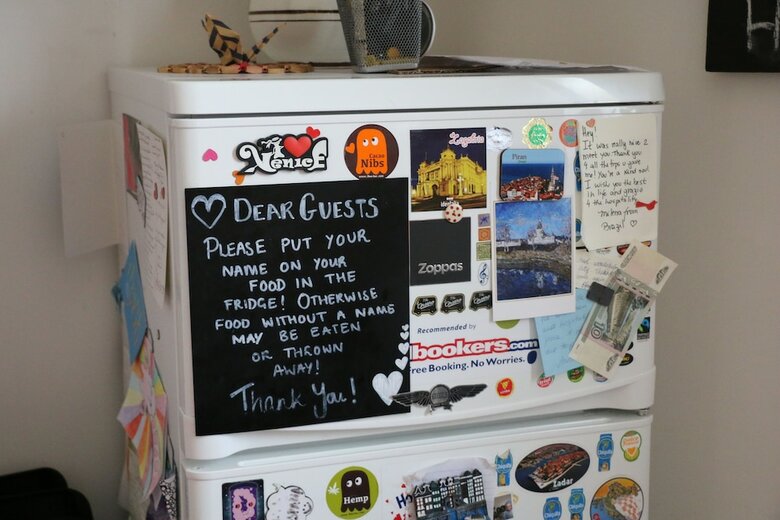 I
Venice
Cacao
Nibs
♡ DEAR GUESTS
PLEASE PUT YOUR
NAME ON YOUR
FOOD IN THE
FRIDGE! OTHERWISE
FOOD WITHOUT A NAME
MAY BE EATEN
OR THROWN
AWAY!
Thank You!
Zagreb
Zoppas
Piran
Recommended by
lbookers.com
Free Booking. No Worries.
Hey!
It was really nice 2
meet you Thank you
4 all the tips u gave
me! You're a kind soul
I wish you the best
in life and
4 the hospitality
from
Brazil ♡
Hemp
Zadar
Chiquita
Chiquita
Chiquita